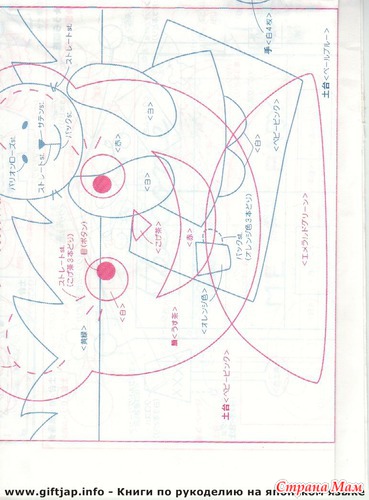 土台<ペールブルー>
手<白4枚>
ストレートst.
サテンst.
バックst.
ストレートst.
バリオンローズst.
<赤>
<白>
<白>
<白>
<ベビーピンク>
<エメラルドグリーン>
<こげ茶>
<赤>
バックst.
(オレンジ色3本どり)
<オレンジ色>
目(ボタン)
ストレートst.
(こげ茶3本どり)
<白>
<黄緑>
顔<うす茶>
土台<ベビーピンク>
www.giftjap.info - Книги по рукоделию на японском языке
Страна Мам